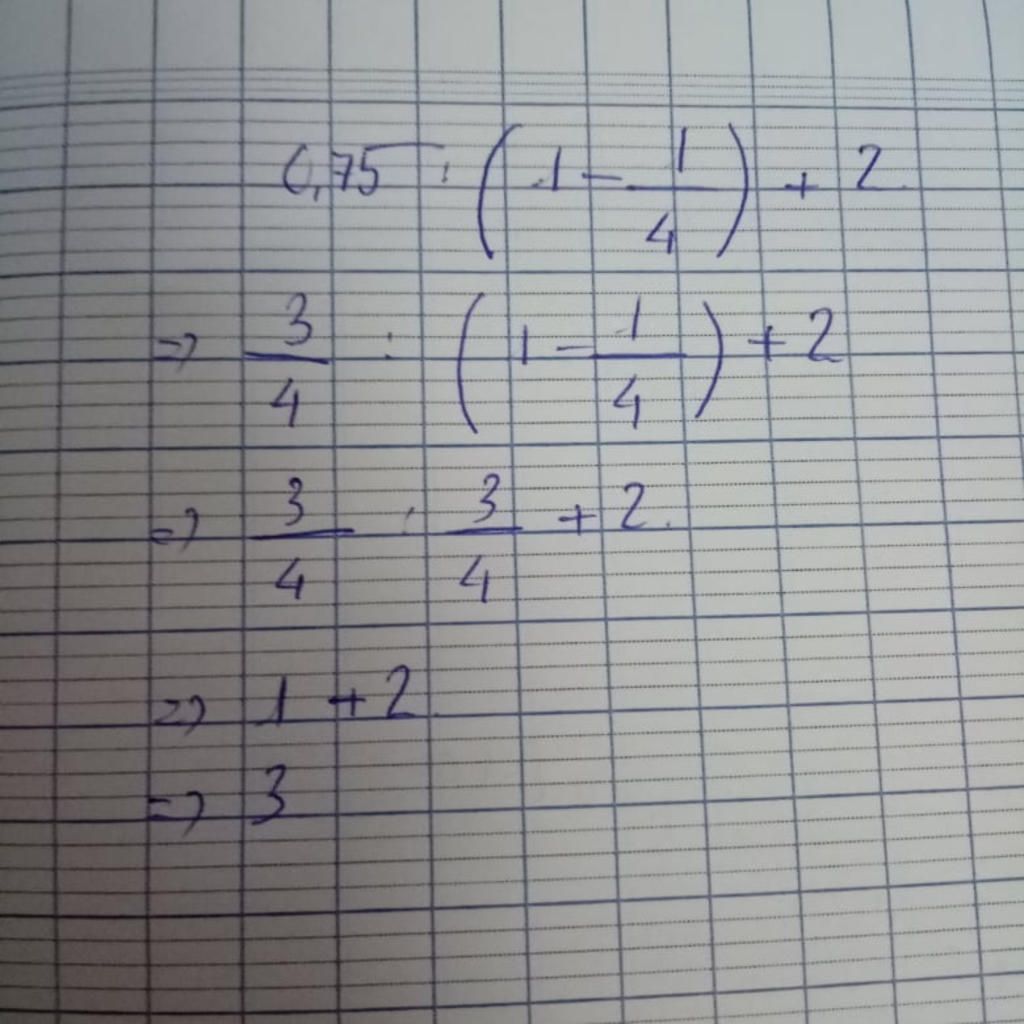 0,75 : ( 1 - 1/4 ) + 2
=> 3/4 : ( 1 - 1/4 ) + 2
=> 3/4 : 3/4 + 2.
=> 1 + 2
=> 3